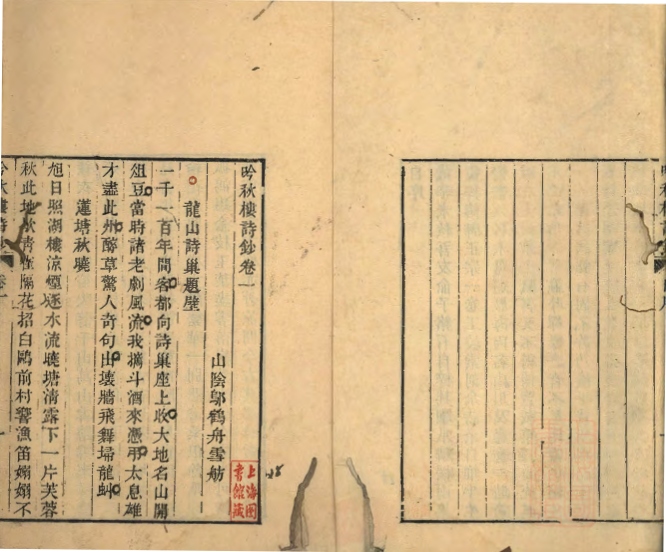 吟秋樓詩鈔卷一
山陰鄔鶴舟雪舫
龍山詩巢題壁
一千一百年間客都向詩巢座上收大地名山開
俎豆當時諸老劇風流我攜斗酒來憑弔太息雄
才盡此州醉草驚人奇句出壞牆飛舞埽龍虯
蓮塘秋曉
旭日照湖樓涼煙逐水流曉塘清露下一片芙蓉
秋此地
花招白鷗前村響漁笛嫋嫋不
上海圖書館藏